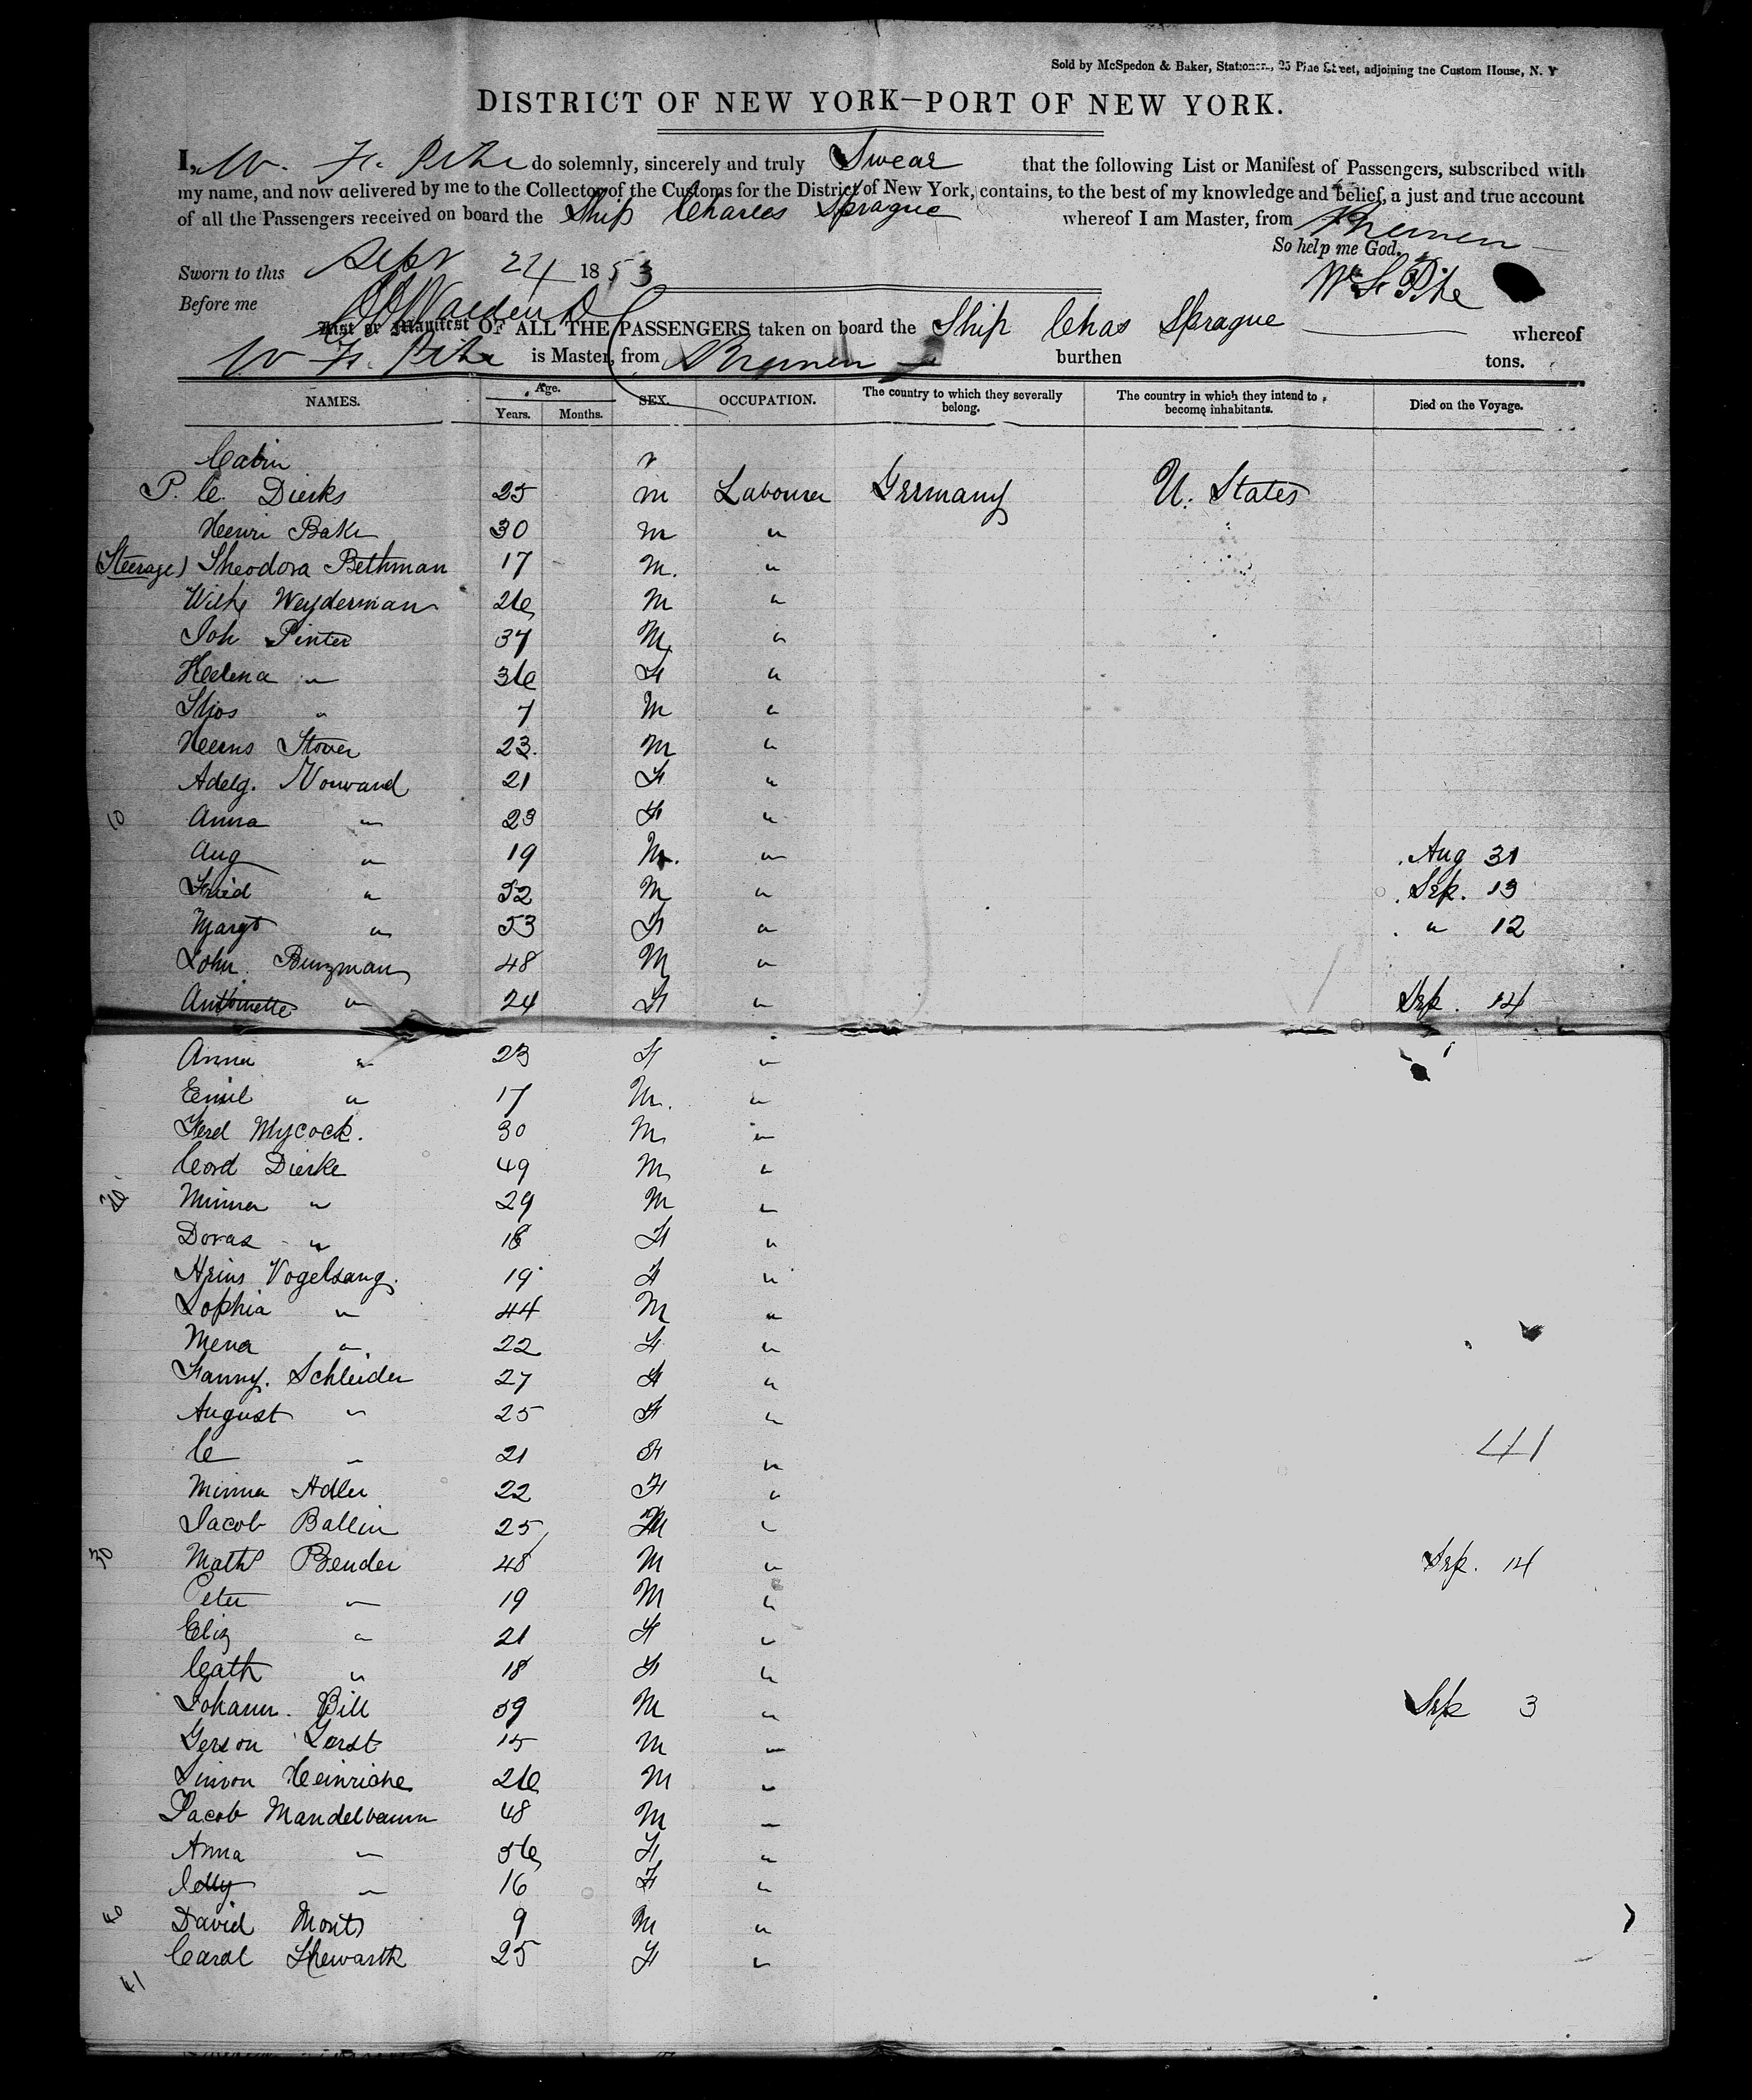 Sold by McSpedon & Baker, Stationers, 25 Pine Street, adjoining the Custom House, N. Y
DISTRICT OF NEW YORK—PORT OF NEW YORK.
I, W. F. Pike do solemnly, sincerely and truly Swear that the following List or Manifest of Passengers, subscribed with
my name, and now delivered by me to the Collector of the Customs for the District of New York, contains, to the best of my knowledge and belief, a just and true account
of all the Passengers received on board the Ship Charles Sprague whereof I am Master, from Bremen
So help me God.
Sworn to this Sept 24 1853
Wm F Pike
Before me
List or Manifest OF ALL THE PASSENGERS taken on board the Ship Chas Sprague whereof
W F. Pike is Master, from Bremen burthen tons.
NAMES. Age. Years. Months. SEX. OCCUPATION. The country to which they severally belong. The country in which they intend to become inhabitants. Died on the Voyage.
Cabin
P. C. Dierks 25 m Labourer Germany U. States
Henri Bake 30 m "
(Steerage) Theodora Bethman 17 M. "
Wilh Weyderman 26 M "
Joh Pinter 37 M "
Helena " 36 F "
" 7 M "
Herns Stover 23. M "
Adelg. Norward 21 F "
10 Anna " 23 F "
Aug " 19 M. " Aug 31
Fried " 52 M " Sep. 13
Margt " 53 F " " 12
John. Bunzman 48 M "
Antoinette " 24 F " Sep. 14
Anna " 23 F "
Emil " 17 M. "
Ferd Mycock. 30 M "
Cord Dierke 49 M "
20 Minna " 29 M "
Doras " 18 F "
Vogelsang. 19 F "
Sophia " 44 M "
Mena " 22 F "
Fanny. Schleider 27 F "
August " 25 F "
C " 21 F "
41
Minna Adler 22 F "
Jacob Ballin 25 M "
30 Math Bender 48 M " Sep. 14
Peter " 19 M "
Eliz " 21 F "
Cath " 18 F "
Johann. Bill 59 M " Sep 3
Gerson Gerst 15 M "
Simon Heinriche 26 M "
Jacob Mandelbaum 48 M "
Anna " 56 F "
" 16 F "
40 David Monts 9 M "
Carol 25 F "
41